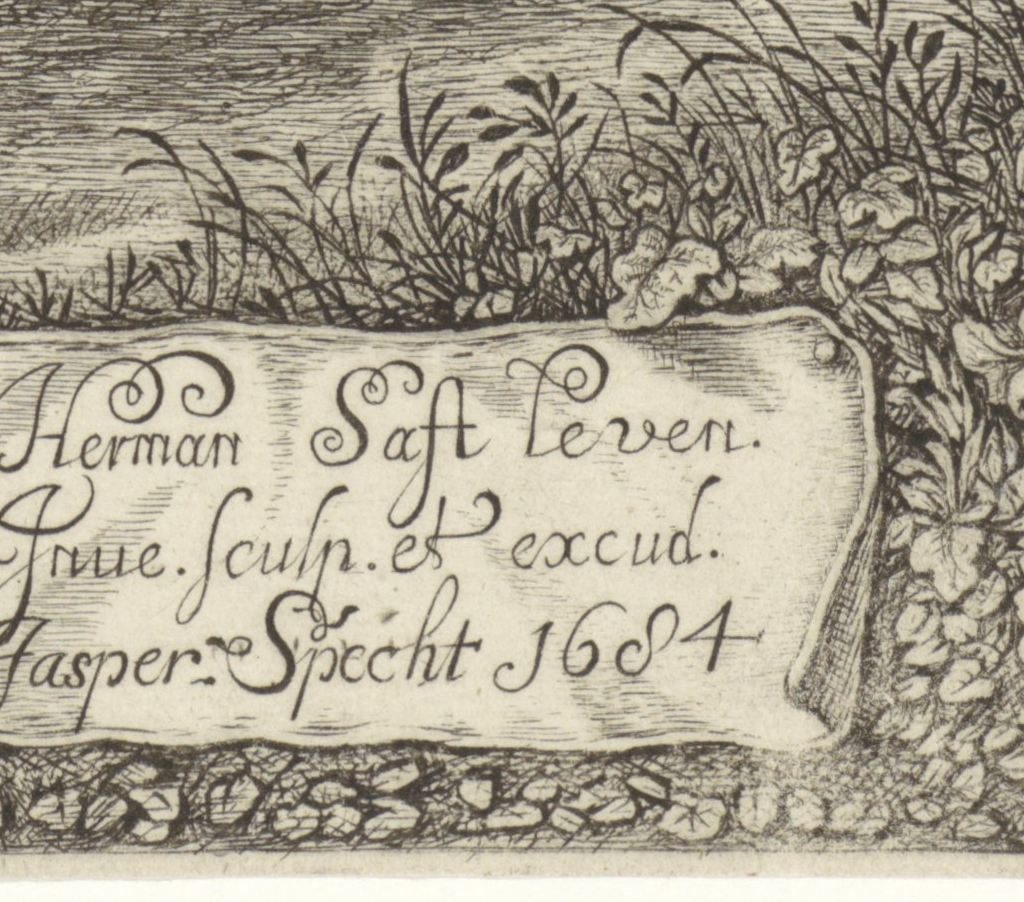 Herman Saft leven.
Inue. sculp. et excud.
Jasper Specht 1684